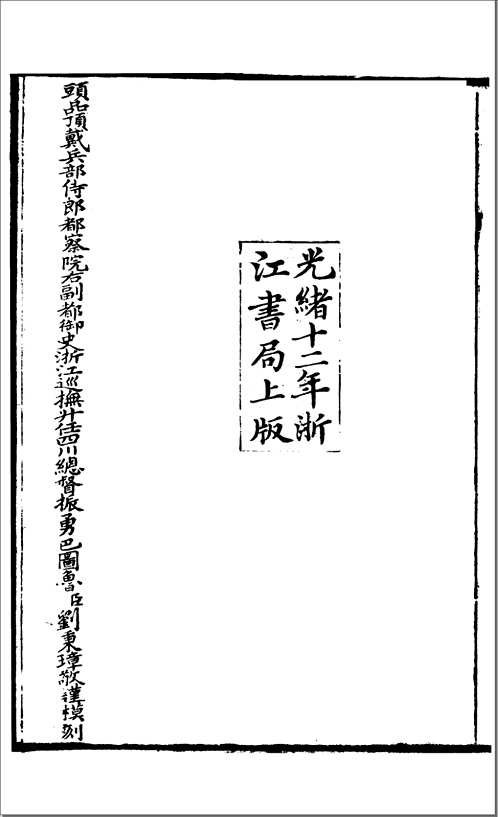 光緒十二年浙
江書局上版
頭品頂戴兵部侍郎都察院右副都御史浙江巡撫升任四川總督振勇巴圖魯臣劉秉璋敬謹模刻